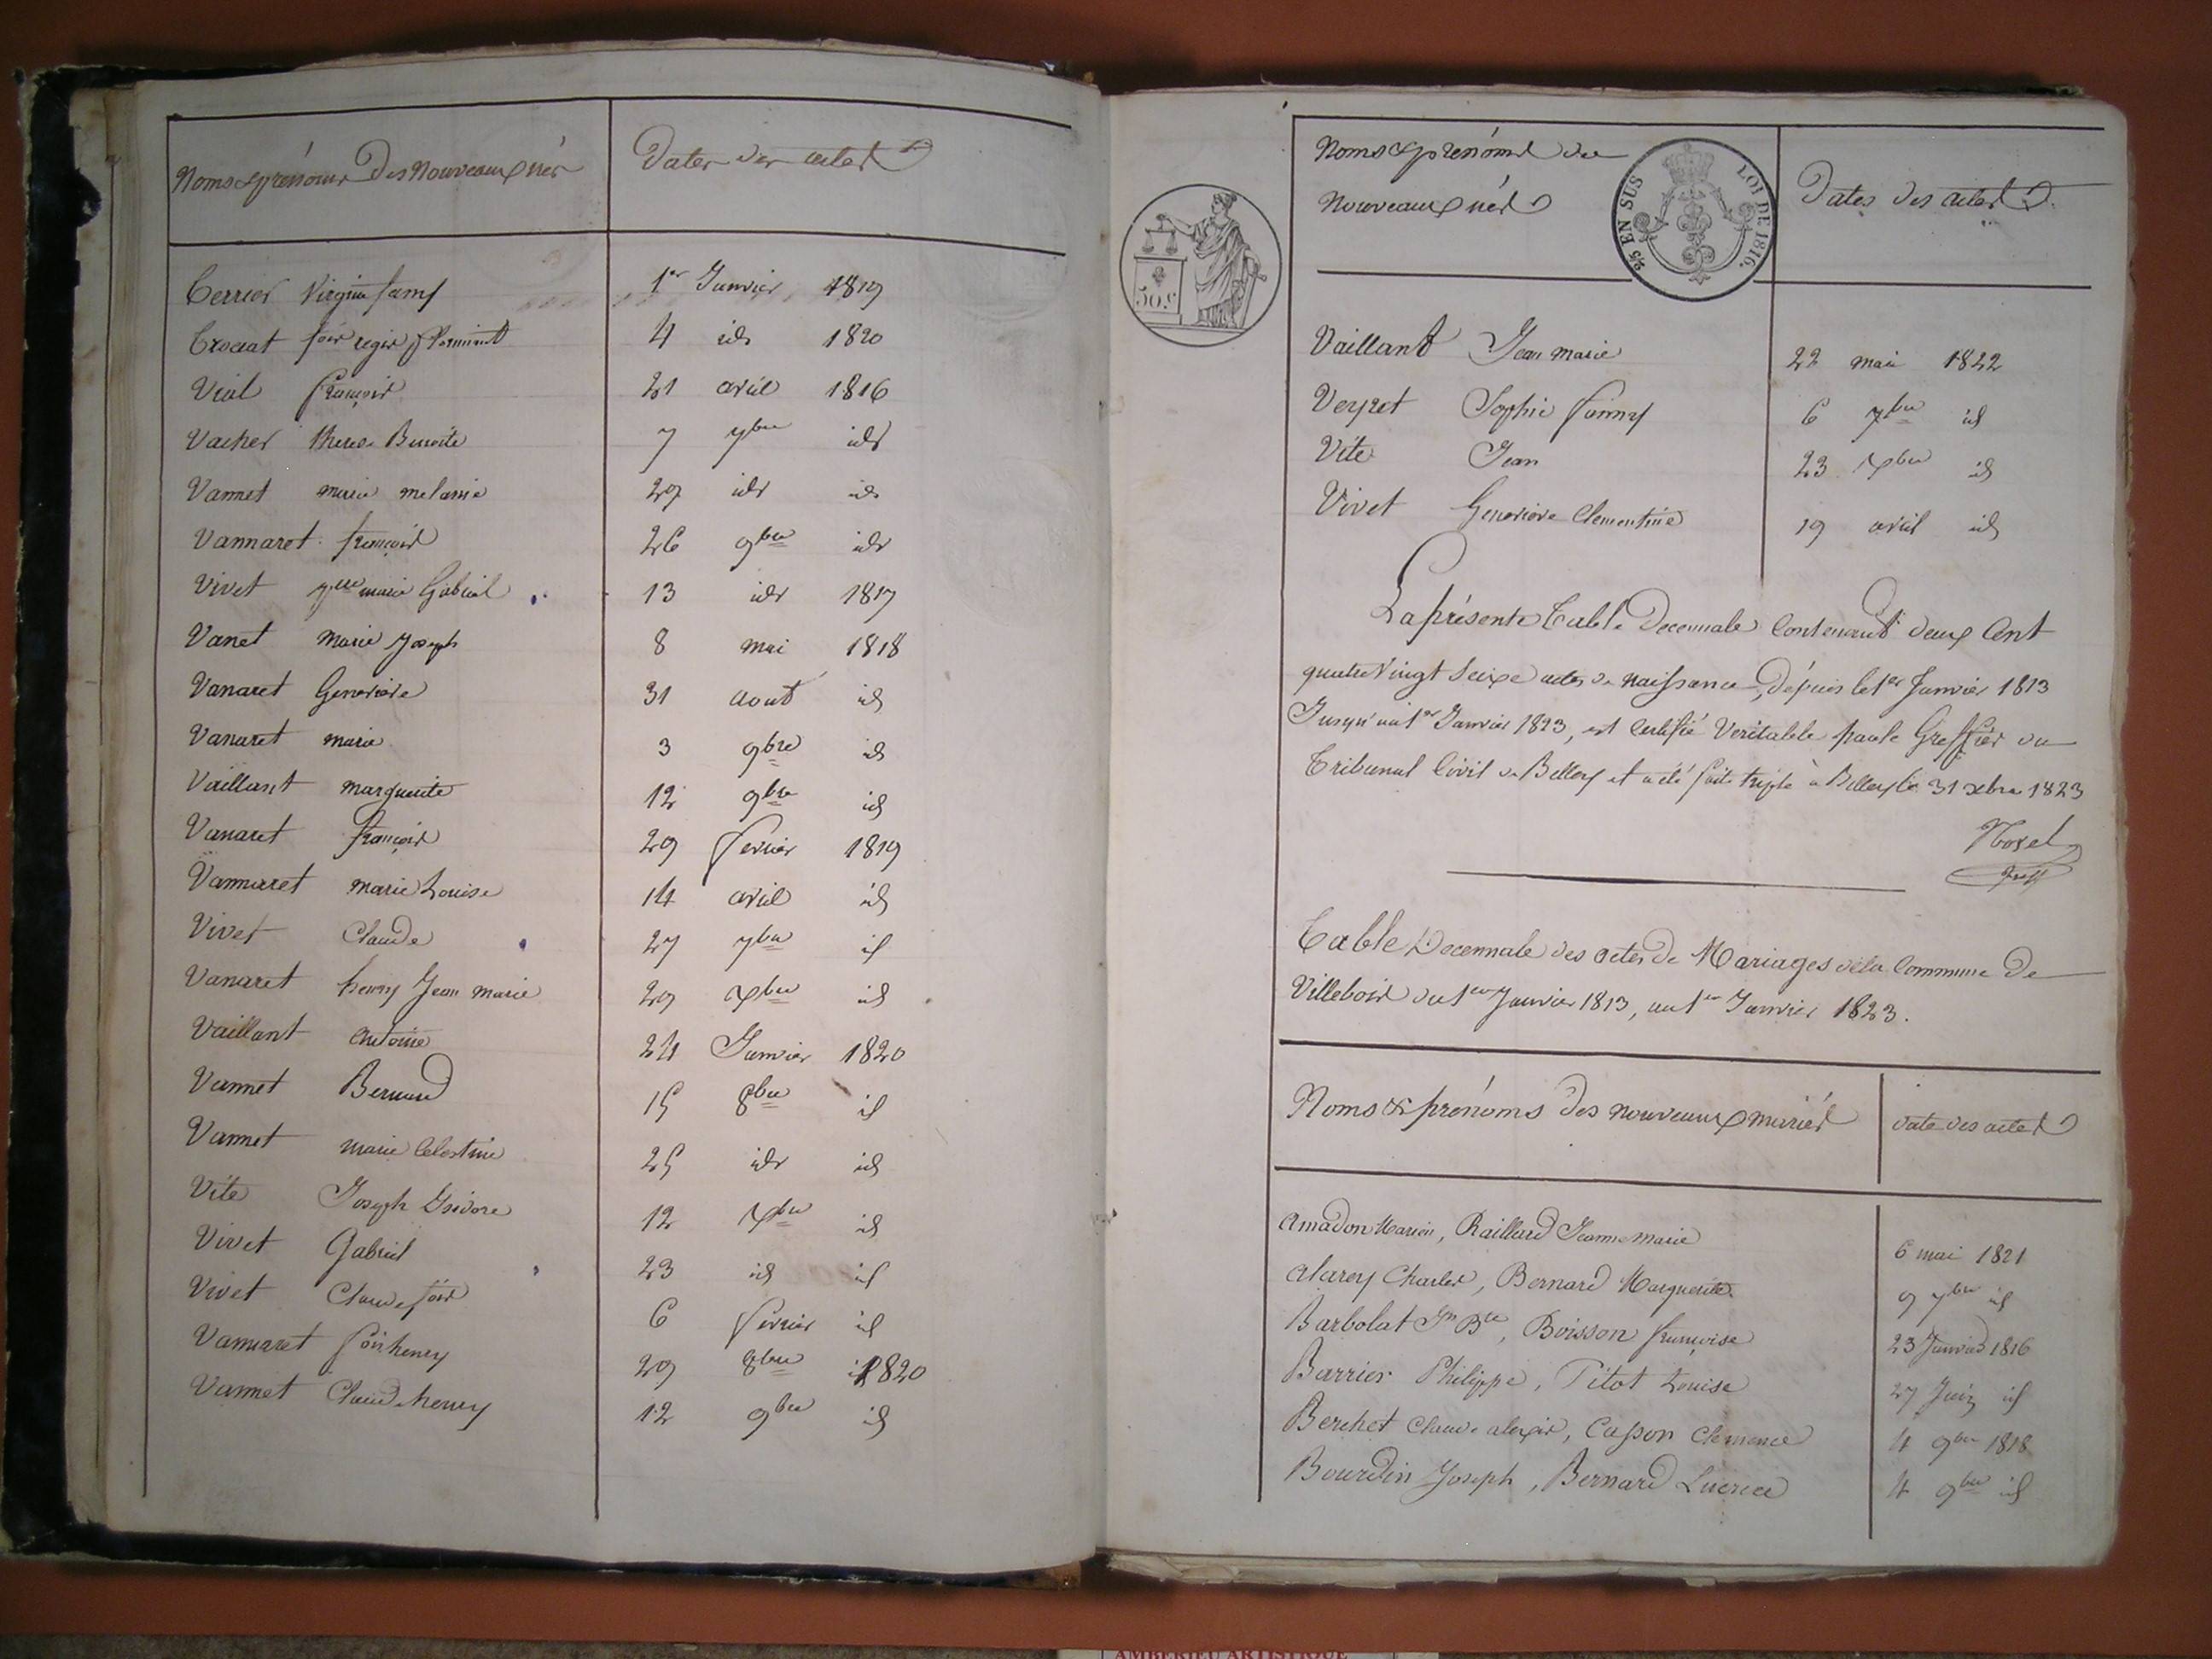 Noms et prénoms Des Nouveaux nés
Dates des actes
Terrier Virginie fany 1er Janvier 1819
Crocat fois regis 4 id 1820
Vial françois 21 avril 1816
Vacher therese Benoite 7 7bre id
Vannet marie melanie 27 id id
Vannaret françois 26 9bre id
Vivet marie Gabriel 13 id 1817
Vanet Marie Joseph 8 mai 1818
Vanaret Genevieve 31 aout id
Vanaret marie 3 9bre id
Vaillant marguerite 12 9bre id
Vanaret françois 29 fevrier 1819
Vannaret marie Louise 14 avril id
Vivet Claude 27 7bre id
Vanaret henry Jean Marie 29 Xbre id
Vaillant antoine 24 Janvier 1820
Vannet Bernard 15 8bre id
Vannet marie Celestine 25 id id
Vite Joseph Isidore 12 Xbre id
Vivet Gabriel 23 id id
Vivet Claude fois 6 fevrier id
Vannaret fois henry 29 8bre 1820
Vannet Claude henry 12 9bre id
Noms et prénoms des
Nouveaux nés
25 EN SUS LOI DE 1816.
Dates des actes
50 c
Vaillant Jean Marie 22 mai 1822
Veyret Sophie fanny 6 7bre id
Vite Jean 23 Xbre id
Vivet Genevieve Clementine 19 avril id
La présente Table Decennale Contenant deux Cent
quatre Vingt Seize actes de naissance, depuis le 1er Janvier 1813
Jusqu'au 1er Janvier 1823, est Certifié Veritable par le Greffier du
Tribunal Civil de Belley et a été faite triple à Belley le 31 Xbre 1823
Table Decennale des actes de Mariages de la Commune De
Villebois du 1er Janvier 1813, au 1er Janvier 1823.
Noms & prénoms des nouveaux mariés
date des actes
Amadon Marin, Raillard Jeanne Marie 6 mai 1821
Alarcy Charles, Bernard Marguerite 9 7bre id
Barbolat Jn Bte, Boisson françoise 23 Janvier 1816
Barrier Philippe, Titot Louise 27 Juin id
Berchet Claude alexis, Casson Clemence 4 9bre 1818
Bourdin Joseph, Bernard Lucrece 4 9bre id
AMBERIEU ARTISTIQUE